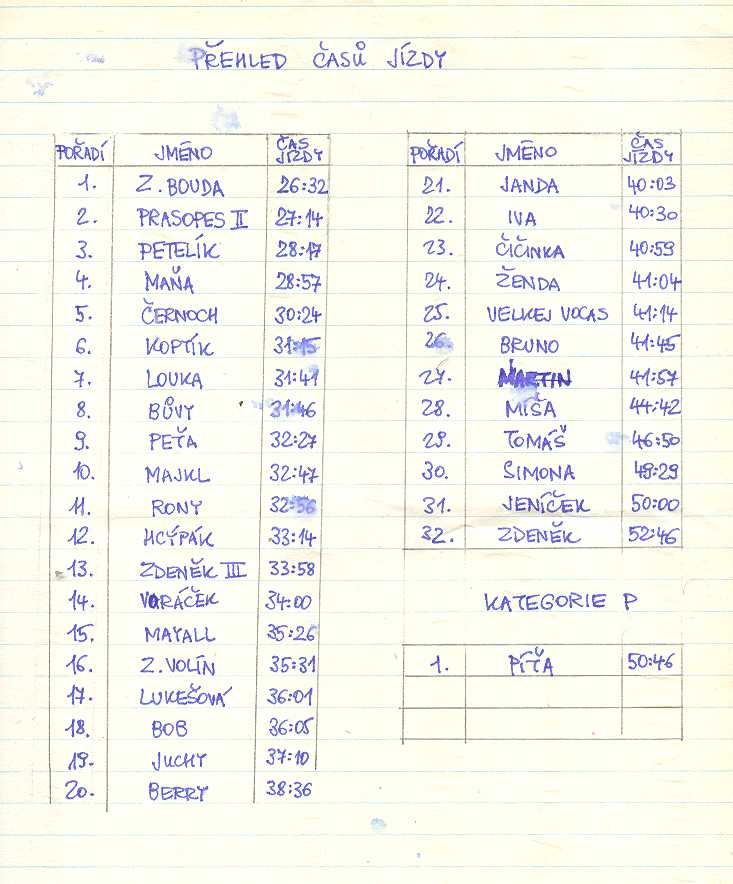 PŘEHLED ČASŮ JÍZDY
POŘADÍ JMÉNO ČAS JÍZDY
1. Z. BOUDA 26:32
2. PRASOPES II 27:14
3. PETELÍK 28:17
4. MAŇA 28:57
5. ČERNOCH 30:24
6. KOPTÍK 31:15
7. LOUKA 31:41
8. BŮVY 31:46
9. PEŤA 32:27
10. MAJKL 32:47
11. RONY 32:56
12. HCÝPÁK 33:14
13. ZDENĚK III 33:58
14. VORÁČEK 34:00
15. MAYALL 35:26
16. Z. VOLÍN 35:31
17. LUKEŠOVÁ 36:01
18. BOB 36:05
19. JUCHY 37:10
20. BERRY 38:36
POŘADÍ JMÉNO ČAS JÍZDY
21. JANDA 40:03
22. IVA 40:30
23. ČIČINKA 40:59
24. ŽENDA 41:04
25. VELKEJ VOCAS 41:14
26. BRUNO 41:45
27. MARTIN 41:57
28. MÍŠA 44:42
29. TOMÁŠ 46:50
30. SIMONA 49:29
31. JENÍČEK 50:00
32. ZDENĚK 52:46
KATEGORIE P
1. PÍŤA 50:46